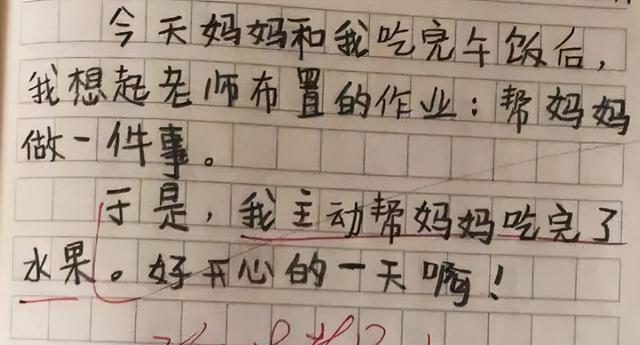 今天妈妈和我吃完午饭后，
我想起老师布置的作业：帮妈妈
做一件事。
于是，我主动帮妈妈吃完了
水果。好开心的一天啊！